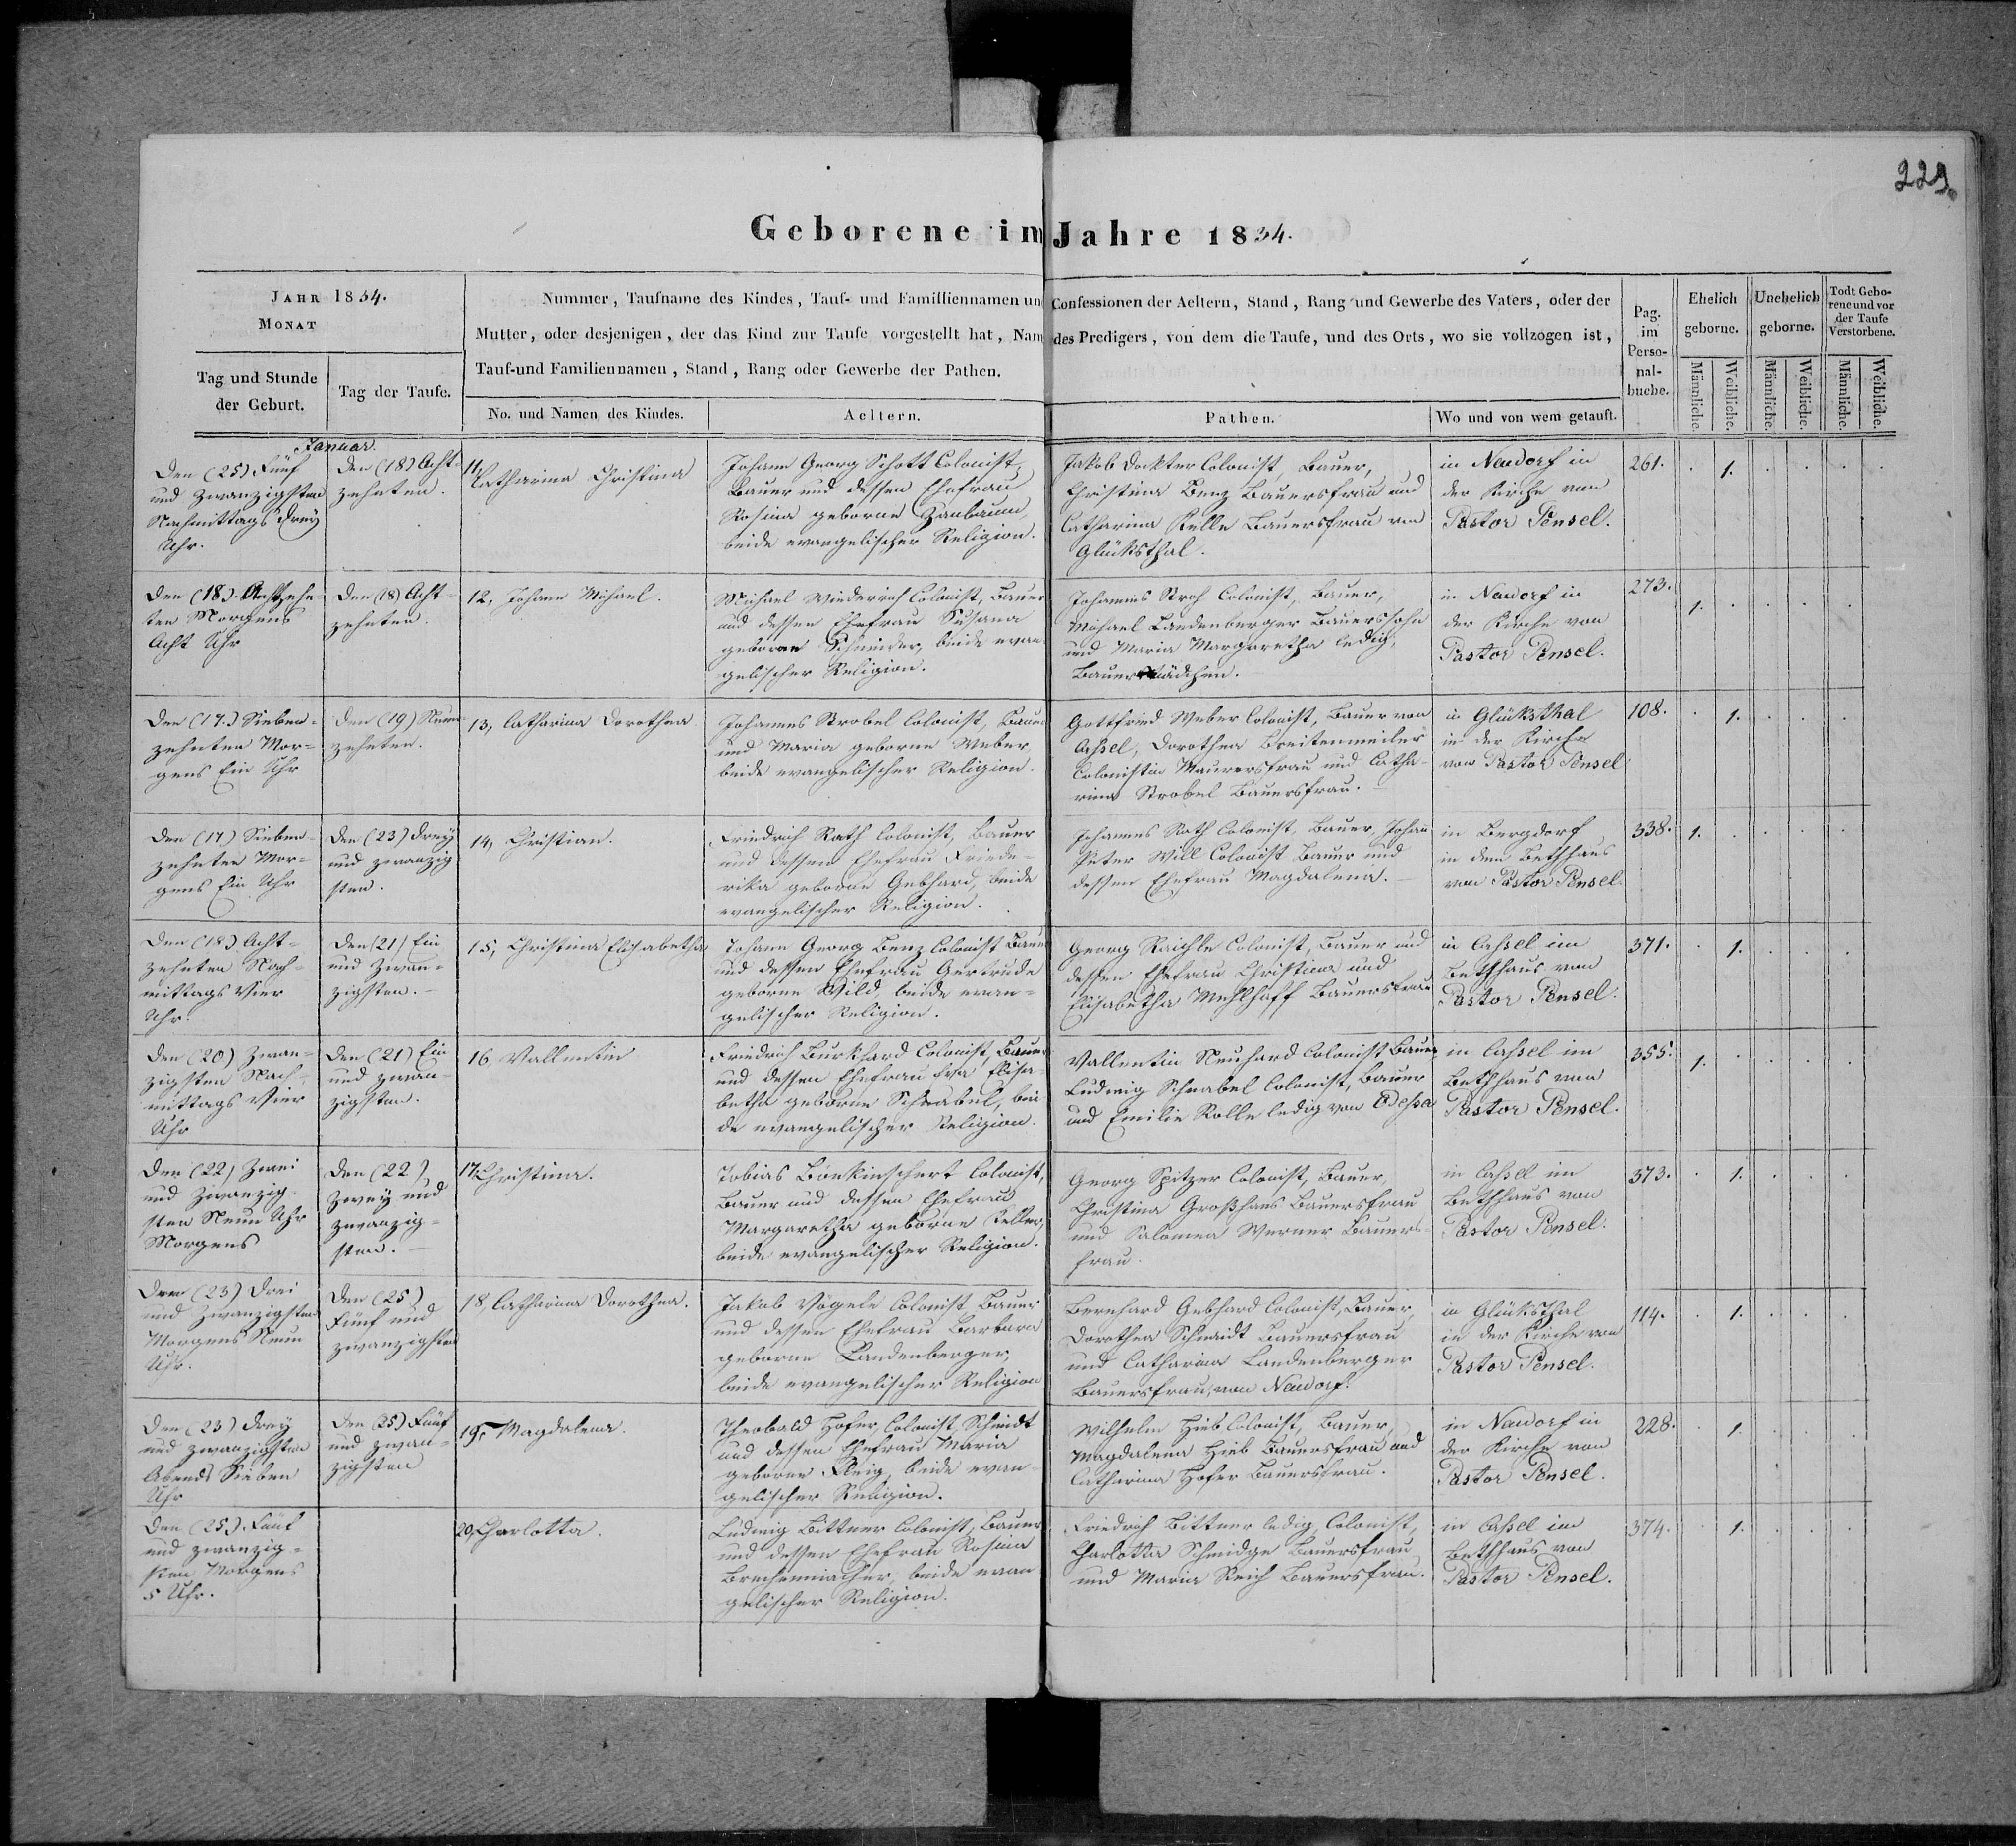 229.
Geborene im Jahre 1834.
JAHR 1834.
MONAT
Tag und Stunde
der Geburt.
Tag der Taufe.
Nummer, Taufname des Kindes, Tauf- und Familiennamen un Confessionen der Aeltern, Stand, Rang und Gewerbe des Vaters, oder der
Mutter, oder desjenigen, der das Kind zur Taufe vorgestellt hat, Nam des Predigers, von dem die Taufe, und des Orts, wo sie vollzogen ist,
Tauf-und Familiennamen, Stand, Rang oder Gewerbe der Pathen.
No. und Namen des Kindes.
Aeltern.
Pathen.
Wo und von wem getauft.
Pag.
im
Perso-
nal-
buche.
Ehelich
geborne.
Unehelich
geborne.
Todt Gebo-
rene und vor
der Taufe
Verstorbene.
Männliche.
Weibliche.
Männliche.
Weibliche.
Männliche.
Weibliche.
Januar.
Den (25) Fünf
und zwanzigsten
Nachmittags Drey
Uhr.
Den (18) Acht-
zehnten.
11, Catharina Christina
Johann Georg Schott Colonist,
Bauer und dessen Ehefrau
Rosina geborne Zanbaum
beide evangelischer Religion.
Jakob Dockter Colonist, Bauer,
Christina Benz Bauersfrau und
Catharina Kelle Bauersfrau von
Glüksthal.
in Neudorf in
der Kirche von
Pastor Pensel.
261. 1.
Den (18). Achtzehn-
ten Morgens
Acht Uhr
Den (18) Acht-
zehnten.
12, Johann Michael.
Michael Wiederrich Colonist, Bauer
und dessen Ehefrau Susana
geborne Schneider, beide evan-
gelischer Religion.
Johannes Stroh Colonist, Bauer,
Michael Landenberger Bauerssohn
und Maria Margaretha ledig,
Bauersmädchen.
in Neudorf in
der Kirche von
Pastor Pensel.
273. 1.
Den (17.) Sieben-
zehnten Mor-
gens Ein Uhr
Den (19) Neun-
zehnten.
13, Catharina Dorothea.
Johannes Strobel Colonist, Bauer
und Maria geborne Weber,
beide evangelischer Religion.
Gottfried Weber Colonist, Bauer von
Cassel, Dorothea Breitenmeiler
Colonistin Maurersfrau und Catha-
rina Strobel Bauersfrau.
in Glüksthal
in der Kirche
von Pastor Pensel
108. 1.
Den (17) Sieben-
zehnten Mor-
gens Ein Uhr
Den (23) Drey
und zwanzig
sten.
14, Christian.
Friedrich Rath Colonist, Bauer
und dessen Ehefrau Friede-
rika geborne Gebhard, beide
evangelischer Religion.
Johannes Rath Colonist, Bauer, Johann
Peter Will Colonist Bauer und
dessen Ehefrau Magdalena.
in Bergdorf
in dem Bethhaus
von Pastor Pensel.
338. 1.
Den (18) Acht-
zehnten Nach-
mittags Vier
Uhr.
Den (21) Ein
und Zwan-
zigsten.
15, Christina Elisabetha
Johann Georg Benz Colonist Bauer
und dessen Ehefrau Gertrude
geborne Wild beide evan-
gelischer Religion.
Georg Raichle Colonist, Bauer und
dessen Ehefrau Christina und
Elisabetha Mehlhaff Bauersfrau
in Cassel im
Bethhaus von
Pastor Pensel.
371. 1.
Den (20) Zwan-
zigsten Nach-
mittags Vier
Uhr
Den (21) Ein
und zwan-
zigsten.
16, Vallentin
Friedrich Burkhard Colonist, Bauer
und dessen Ehefrau Eva Elisa-
betha geborne Schnabel, bei
de evangelischer Religion.
Vallentin Neuhard Colonist Bauer
Ludwig Schnabel Colonist, Bauer
und Emilie Kolle ledig von Odessa
in Cassel im
Bethhaus von
Pastor Pensel.
355. 1.
Den (22) Zwei
und Zwanzig-
sten Neun Uhr
Morgens
Den (22)
Zwey und
zwanzig-
sten.
17. Christina.
Tobias Bänkinschert Colonist,
Bauer und dessen Ehefrau
Margaretha geborne Keller,
beide evangelischer Religion.
Georg Spitzer Colonist, Bauer,
Christina Großhans Bauersfrau
und Salomea Werner Bauers-
frau.
in Cassel im
Bethhaus von
Pastor Pensel.
373. 1.
Den (23) Drei
und Zwanzigsten
Morgens Neun
Uhr.
Den (25)
Fünf und
zwanzigsten
18, Catharina Dorothea.
Jakob Vögele Colonist, Bauer
und dessen Ehefrau Barbara
geborne Landenberger,
beide evangelischer Religion
Bernhard Gebhard Colonist, Bauer,
Dorothea Schmidt Bauersfrau
und Catharina Landenberger
Bauersfrau, von Neudorf.
in Glüksthal
in der Kirche von
Pastor Pensel.
114. 1.
Den (23) Drey
und zwanzigsten
Abends Sieben
Uhr
Den (25) Fünf
und zwan-
zigsten
19, Magdalena.
Theobald Hofer, Colonist, Schmidt
und dessen Ehefrau Maria
geborne Fleig, beide evan-
gelischer Religion.
Wilhelm Hieb Colonist, Bauer,
Magdalena Hieb Bauersfrau und
Catharina Hofer Bauersfrau.
in Neudorf in
der Kirche von
Pastor Pensel.
228. 1.
Den (25). Fünf
und zwanzig-
sten Morgens
5 Uhr.
20, Charlotta.
Ludwig Bittner Colonist, Bauer
und dessen Ehefrau Rosina
Brechenmacher, beide evan-
gelischer Religion.
Friedrich Bittner ledig, Colonist,
Charlotta Schmidge Bauersfrau
und Maria Reich Bauersfrau.
in Cassel im
Bethhaus von
Pastor Pensel.
374. 1.